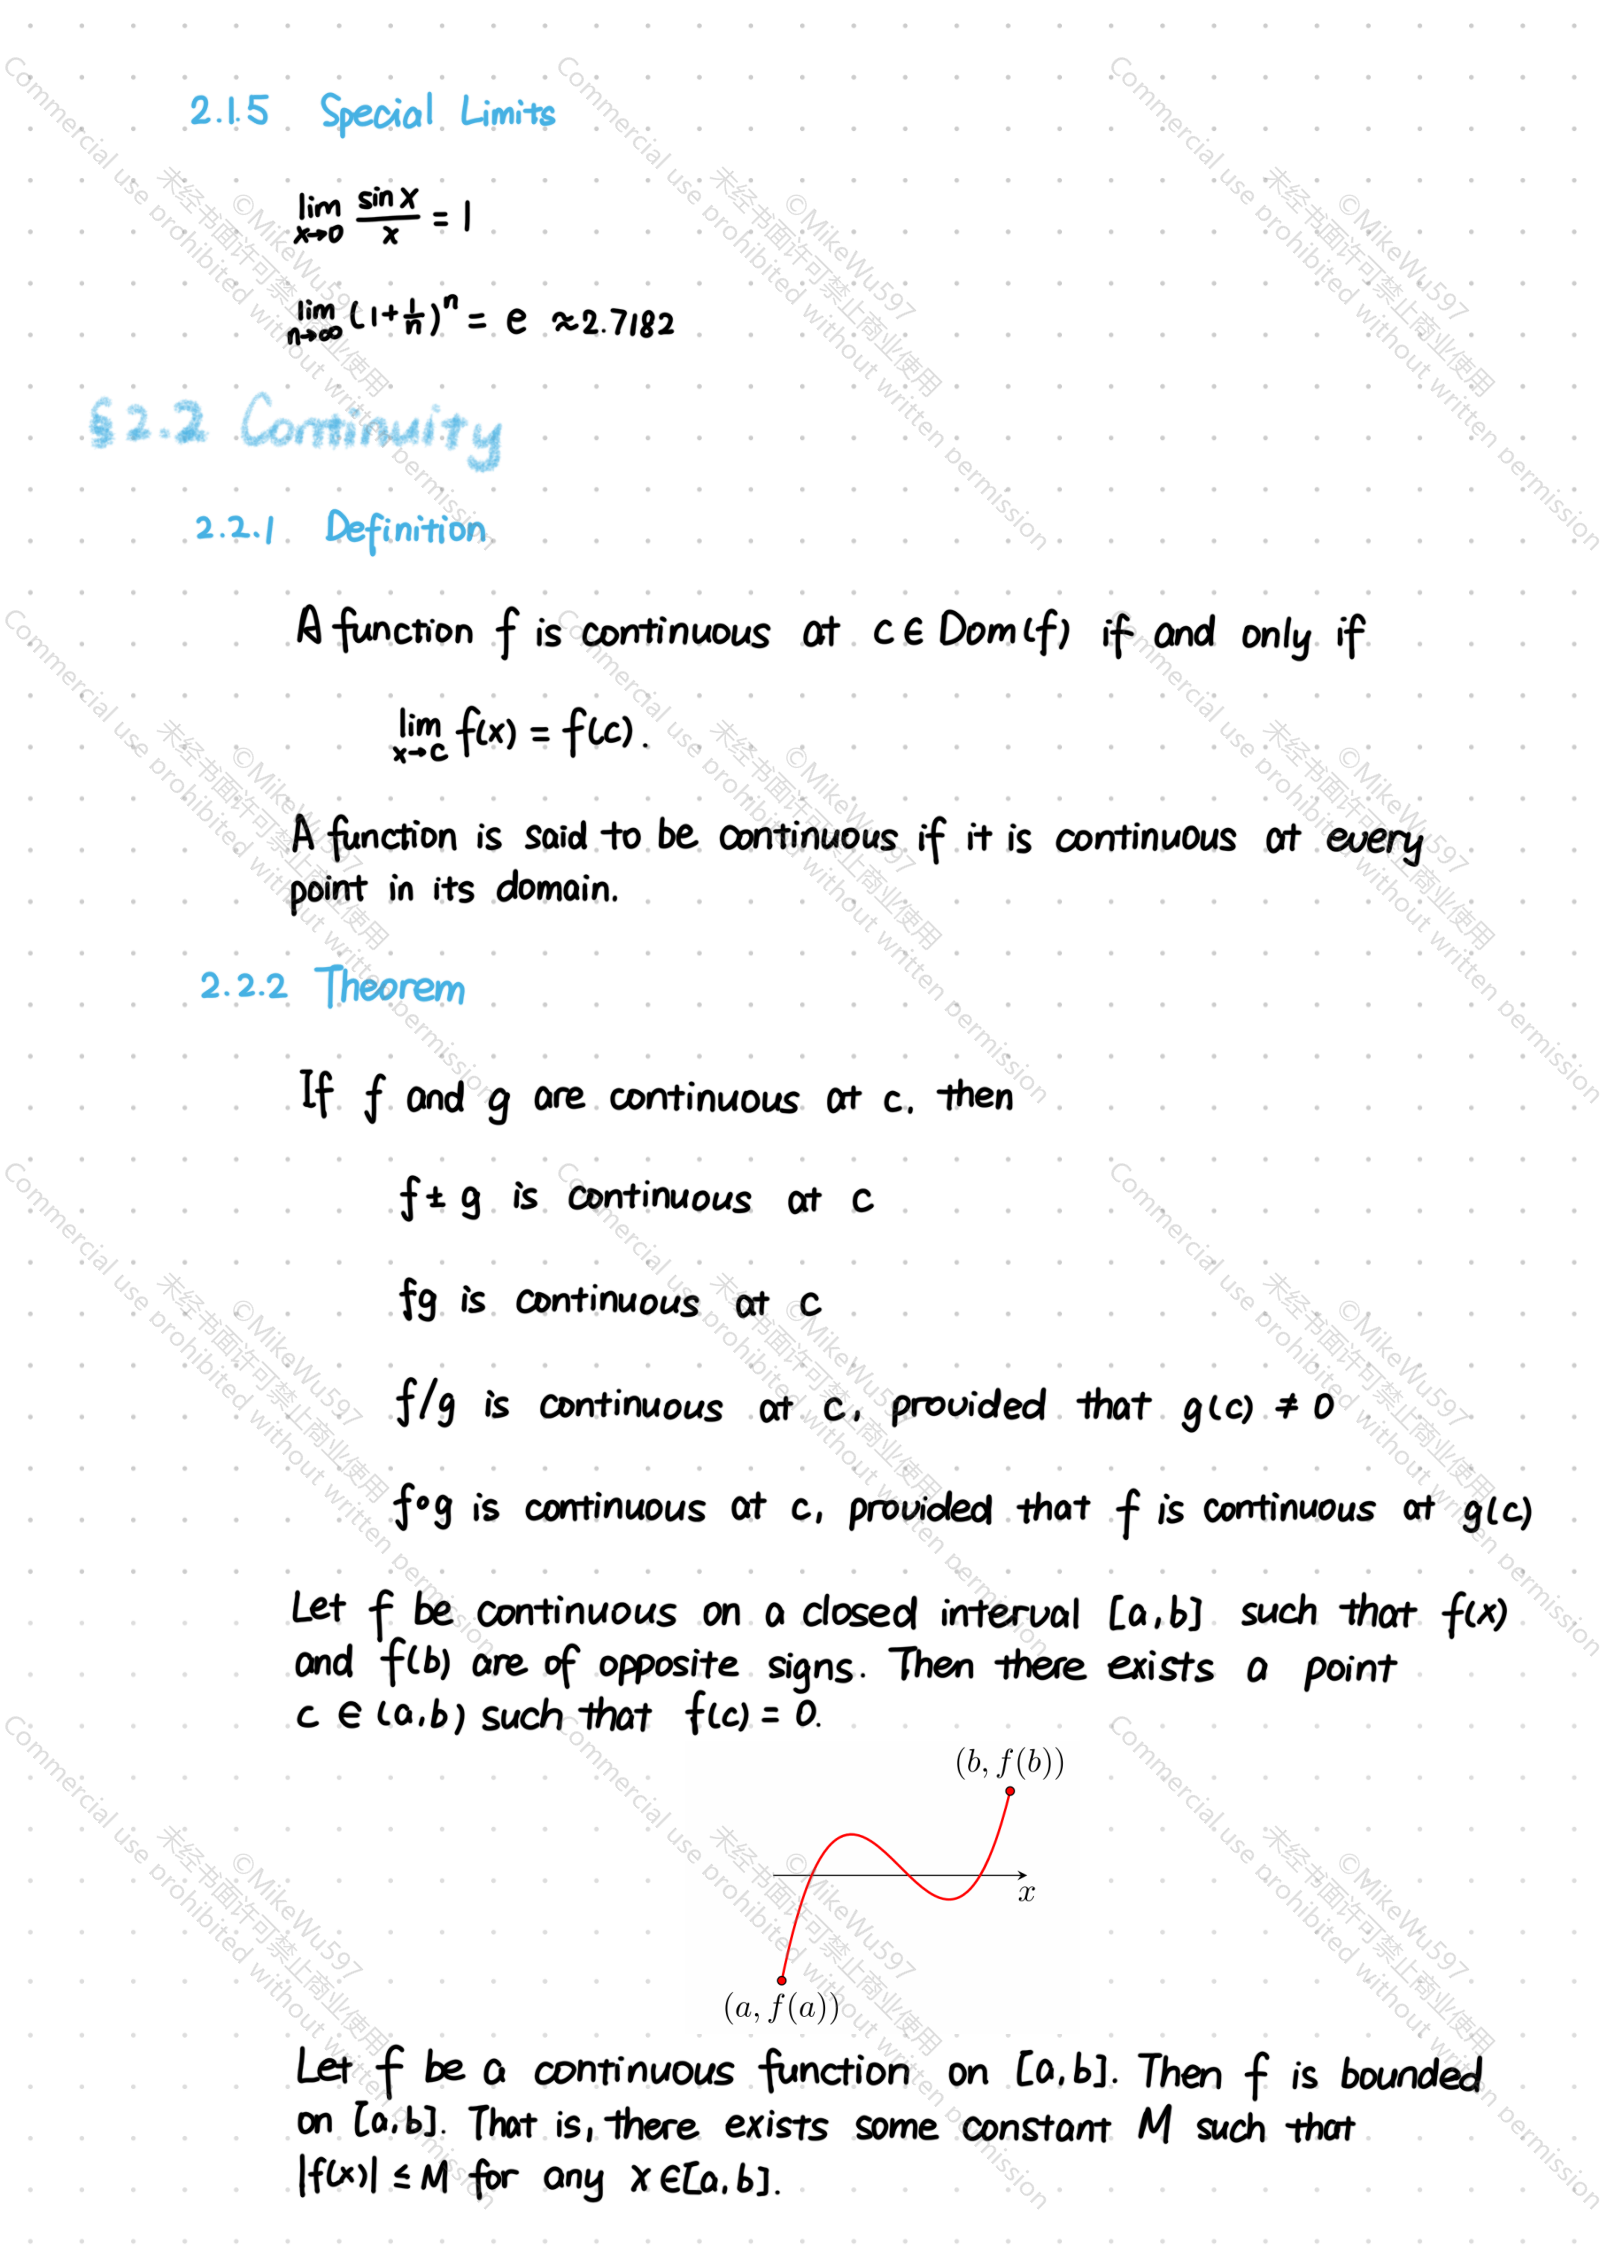 2.1.5 Special Limits
lim x→0 sin x / x = 1
lim n→∞ (1+1/n)^n = e ≈2.7182
§2.2 Continuity
2.2.1 Definition
A function f is continuous at c ∈ Dom(f) if and only if
lim x→c f(x) = f(c).
A function is said to be continuous if it is continuous at every
point in its domain.
2.2.2 Theorem
If f and g are continuous at c, then
f ± g is continuous at c
fg is continuous at c
f/g is continuous at c, provided that g(c) ≠ 0
f∘g is continuous at c, provided that f is continuous at g(c)
Let f be continuous on a closed interval [a,b] such that f(x)
and f(b) are of opposite signs. Then there exists a point
c ∈ (a,b) such that f(c) = 0.
(b, f(b))
x
(a, f(a))
Let f be a continuous function on [a,b]. Then f is bounded
on [a,b]. That is, there exists some constant M such that
|f(x)| ≤ M for any x ∈ [a,b].
©MikeWu597
未经书面许可禁止商业使用
Commercial use prohibited without written permission